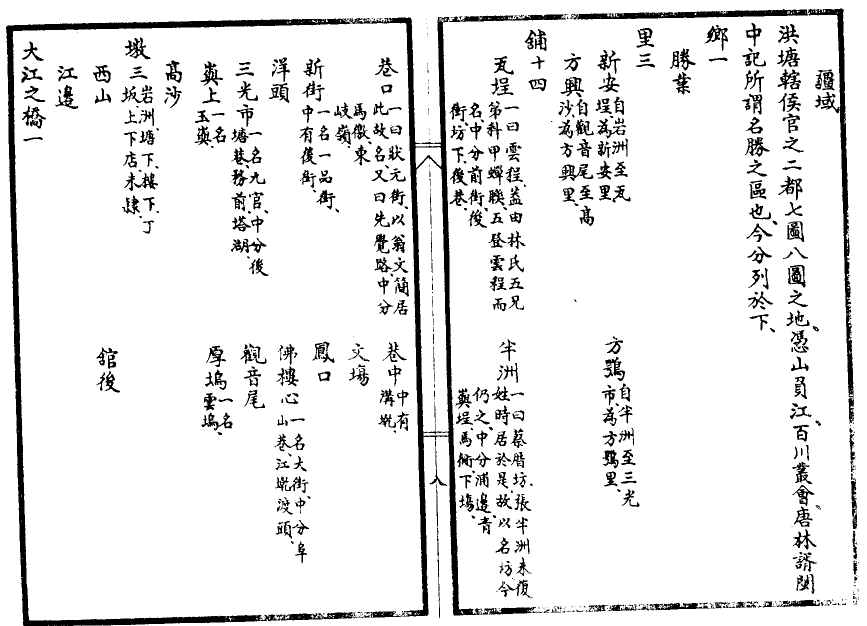 疆域
洪塘轄侯官之二都七圖八圖之地、憑山員江、百川叢會、唐林諝閩
中記所謂名勝之區也、今分列於下、
鄉一
勝業
里三
新安自岩洲至瓦埕、為新安里、
方鶚自半洲至三光市、為方鶚里、
方興自觀音尾至高沙、為方興里、
舖十四
瓦埕一曰雲程、蓋由林氏五兄弟科甲蟬聯、五登雲程而名、中分前街、後街坊下、後巷、
半洲一曰蔡厝坊、張半洲未復姓時居於是、故以名坊、今仍之、中分浦邊、青埕、馬術、下塲、
巷口一曰狀元街、以翁文簡居此故名、又曰先覺路、中分馬徽、東岐嶺、
巷中中有溝墘、
文塲
新街一名一品街、中有後街、
鳳口
洋頭
佛樓心一名大街、中分阜山巷、江墘渡頭、
三光市一名九官、中分後塘巷、務前、塔湖、
觀音尾
上一名玉
厚塢一名雲塢、
高沙
墩三岩洲、塘下、樓下、丁坂、上下店未隸、
西山
舘後
江邊
大江之橋一
八